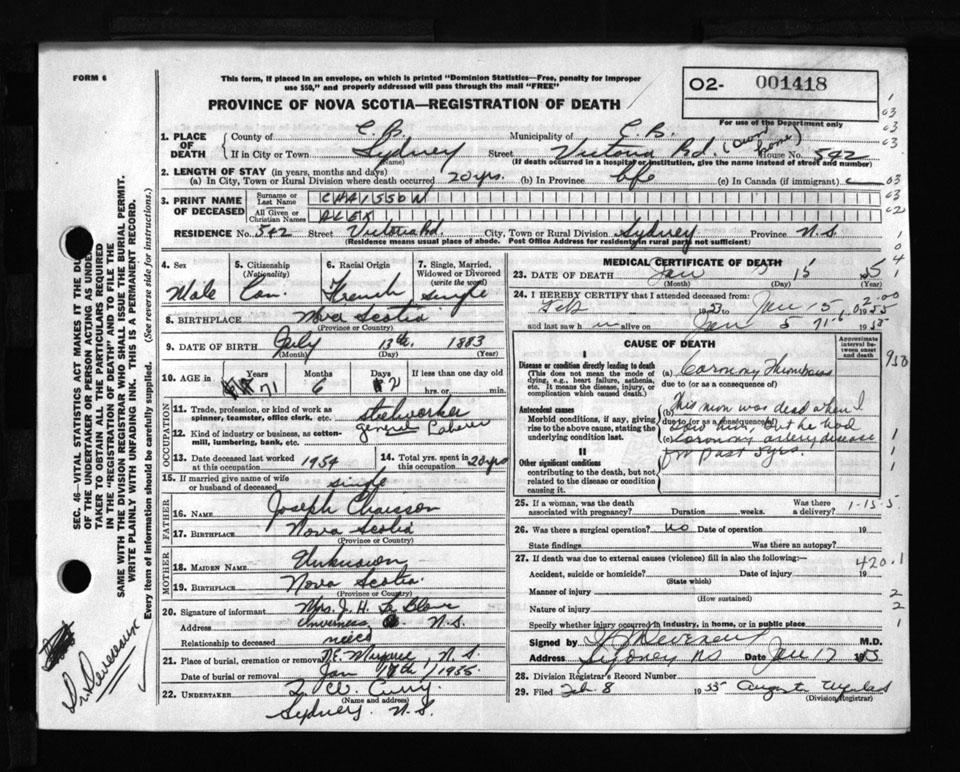 FORM 6
This form, if placed in an envelope, on which is printed "Dominion Statistics—Free, penalty for improper
use $50," and properly addressed will pass through the mail "FREE"
O2- 001418
PROVINCE OF NOVA SCOTIA—REGISTRATION OF DEATH
For use of the Department only
1. PLACE OF DEATH
County of C.B. Municipality of C.B.
If in City or Town Sydney (Name) Street Victoria Rd. (Own home) House No. 542
(If death occurred in a hospital or institution, give the name instead of street and number)
2. LENGTH OF STAY (in years, months and days)
(a) In City, Town or Rural Division where death occurred 20 yrs. (b) In Province life (c) In Canada (if immigrant)
3. PRINT NAME OF DECEASED
Surname or Last Name CHAISSON
All Given or Christian Names ALEX
RESIDENCE No. 542 Street Victoria Rd. City, Town or Rural Division Sydney Province N.S.
(Residence means usual place of abode. Post Office Address for residents in rural parts not sufficient)
4. Sex
Male
5. Citizenship (Nationality)
Can.
6. Racial Origin
French
7. Single, Married, Widowed or Divorced (write the word)
single
8. BIRTHPLACE Nova Scotia
(Province or Country)
9. DATE OF BIRTH July 13th. 1883
(Month) (Day) (Year)
10. AGE in Years Months Days If less than one day old
71 6 2 hrs. or min.
OCCUPATION
11. Trade, profession, or kind of work as spinner, teamster, office clerk, etc. steelworker
12. Kind of industry or business, as cotton-mill, lumbering, bank, etc. general Laborer
13. Date deceased last worked at this occupation 1954
14. Total yrs. spent in this occupation 20 yrs
15. If married give name of wife or husband of deceased single
FATHER
16. NAME Joseph Chaisson
17. BIRTHPLACE Nova Scotia
(Province or Country)
MOTHER
18. MAIDEN NAME Unknown
19. BIRTHPLACE Nova Scotia.
(Province or Country)
20. Signature of informant Mrs. J. H. Le Blanc
Address Inverness N.S.
Relationship to deceased niece
21. Place of burial, cremation or removal N.E. Margaree, N.S.
Date of burial or removal Jan 18th/1955
22. UNDERTAKER T. W. Curry.
(Name and address)
Sydney. N.S.
MEDICAL CERTIFICATE OF DEATH
23. DATE OF DEATH Jan 15 55
(Month) (Day) (Year)
24. I HEREBY CERTIFY that I attended deceased from:
Feb 1953 to Jan 15 1955
and last saw h im alive on Jan 5 1955
CAUSE OF DEATH
Approximate interval between onset and death
I
Disease or condition directly leading to death
(This does not mean the mode of dying, e.g., heart failure, asthenia, etc. It means the disease, injury, or complication which caused death.)
(a) Coronary Thrombosis
due to (or as a consequence of)
Antecedent causes
Morbid conditions, if any, giving rise to the above cause, stating the underlying condition last.
(b) This man was dead when I
due to (or as a consequence of)
saw him, but he had
(c) Coronary artery disease
for past 5 yrs.
II
Other significant conditions
contributing to the death, but not related to the disease or condition causing it.
25. If a woman, was the death associated with pregnancy? Duration weeks. Was there a delivery?
1-15-5
26. Was there a surgical operation? no Date of operation 19
State findings Was there an autopsy?
27. If death was due to external causes (violence) fill in also the following:—
420.1
Accident, suicide or homicide? Date of injury 19
(State which)
Manner of injury
(How sustained)
Nature of injury
Specify whether injury occurred in industry, in home, or in public place
Signed by Devereux M.D.
Address Sydney NS Date Jan 17 1955
28. Division Registrar's Record Number
29. Filed Feb 8 1955
(Division Registrar)
SEC. 46—VITAL STATISTICS ACT MAKES IT THE DU
OF THE UNDERTAKER OR PERSON ACTING AS UNDER
TAKER TO OBTAIN ALL THE PARTICULARS REQUIRED
IN THE "REGISTRATION OF DEATH" AND TO FILE THE
SAME WITH THE DIVISION REGISTRAR WHO SHALL ISSUE THE BURIAL PERMIT.
WRITE PLAINLY WITH UNFADING INK. THIS IS A PERMANENT RECORD.
Every item of information should be carefully supplied. (See reverse side for instructions.)
Dr. Devereux